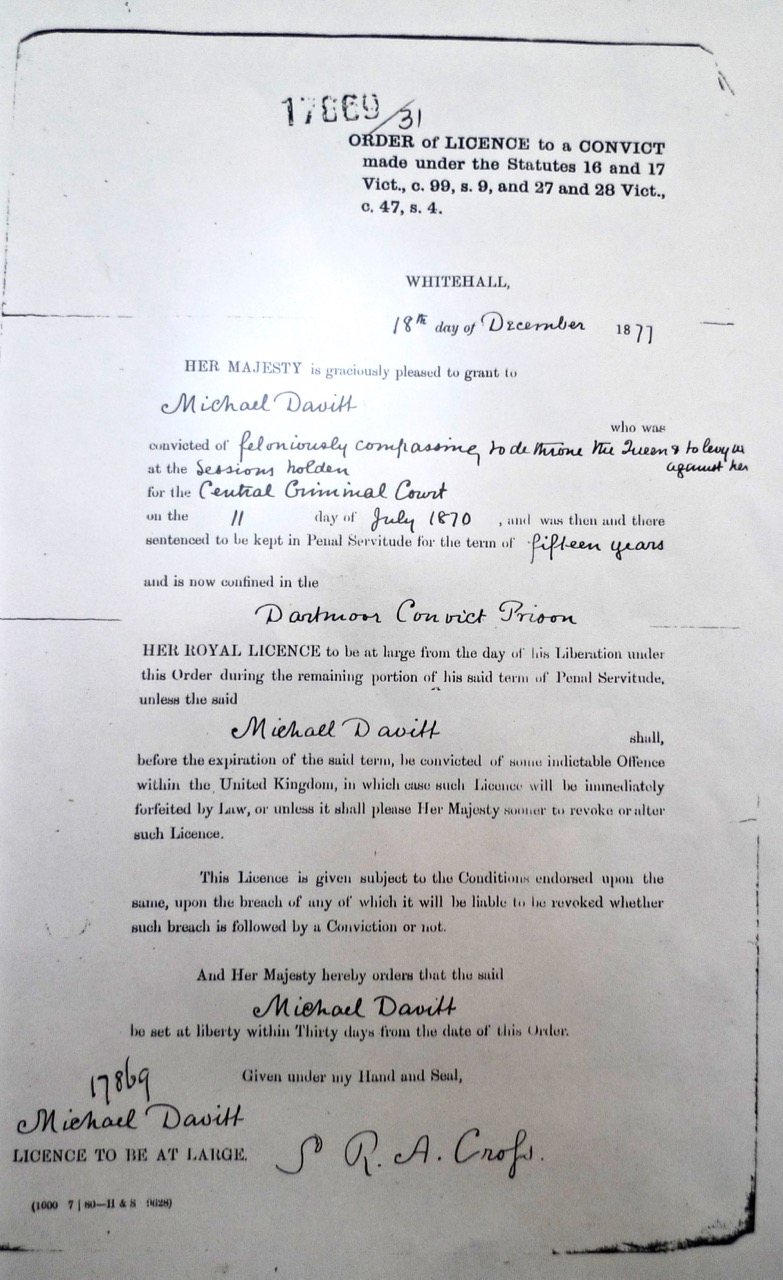 17869/31
ORDER of LICENCE to a CONVICT
made under the Statutes 16 and 17
Vict., c. 99, s. 9, and 27 and 28 Vict.,
c. 47, s. 4.
WHITEHALL,
18th day of December 1877
HER MAJESTY is graciously pleased to grant to
Michael Davitt
who was
convicted of feloniously compassing to dethrone the Queen & to levy
at the Sessions holden against her
for the Central Criminal Court
on the 11 day of July 1870 , and was then and there
sentenced to be kept in Penal Servitude for the term of fifteen years
and is now confined in the
Dartmoor Convict Prison
HER ROYAL LICENCE to be at large from the day of his Liberation under
this Order during the remaining portion of his said term of Penal Servitude,
unless the said
Michael Davitt shall,
before the expiration of the said term, be convicted of some indictable Offence
within the United Kingdom, in which case such Licence will be immediately
forfeited by Law, or unless it shall please Her Majesty sooner to revoke or alter
such Licence.
This Licence is given subject to the Conditions endorsed upon the
same, upon the breach of any of which it will be liable to be revoked whether
such breach is followed by a Conviction or not.
And Her Majesty hereby orders that the said
Michael Davitt
be set at liberty within Thirty days from the date of this Order.
Given under my Hand and Seal,
17869
Michael Davitt
LICENCE TO BE AT LARGE. R. A. Cross.
(1000 7 | 80—H & S 9628)